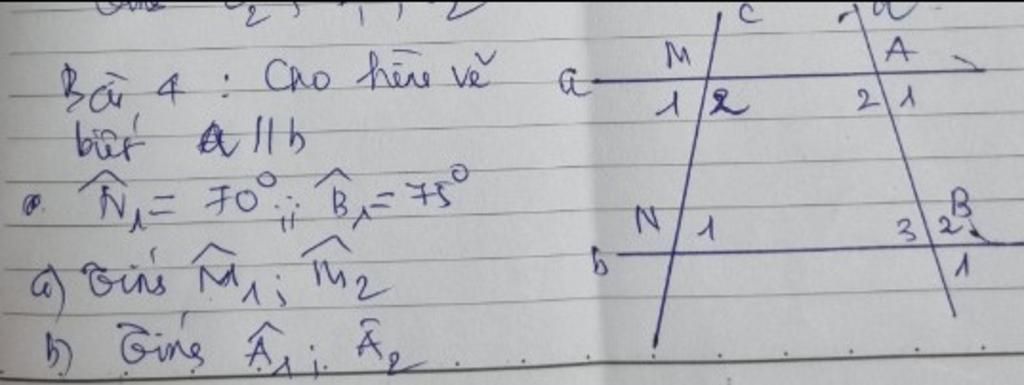 Bài 4 : Cho hình vẽ
biết a // b
N̂₁ = 70° ; B̂₁ = 75°
a) Tính M̂₁ ; M̂₂
b) Tính Â₁ ; Â₂
c
a M A
1 2 2 1
N 1 3 2 B
b 1